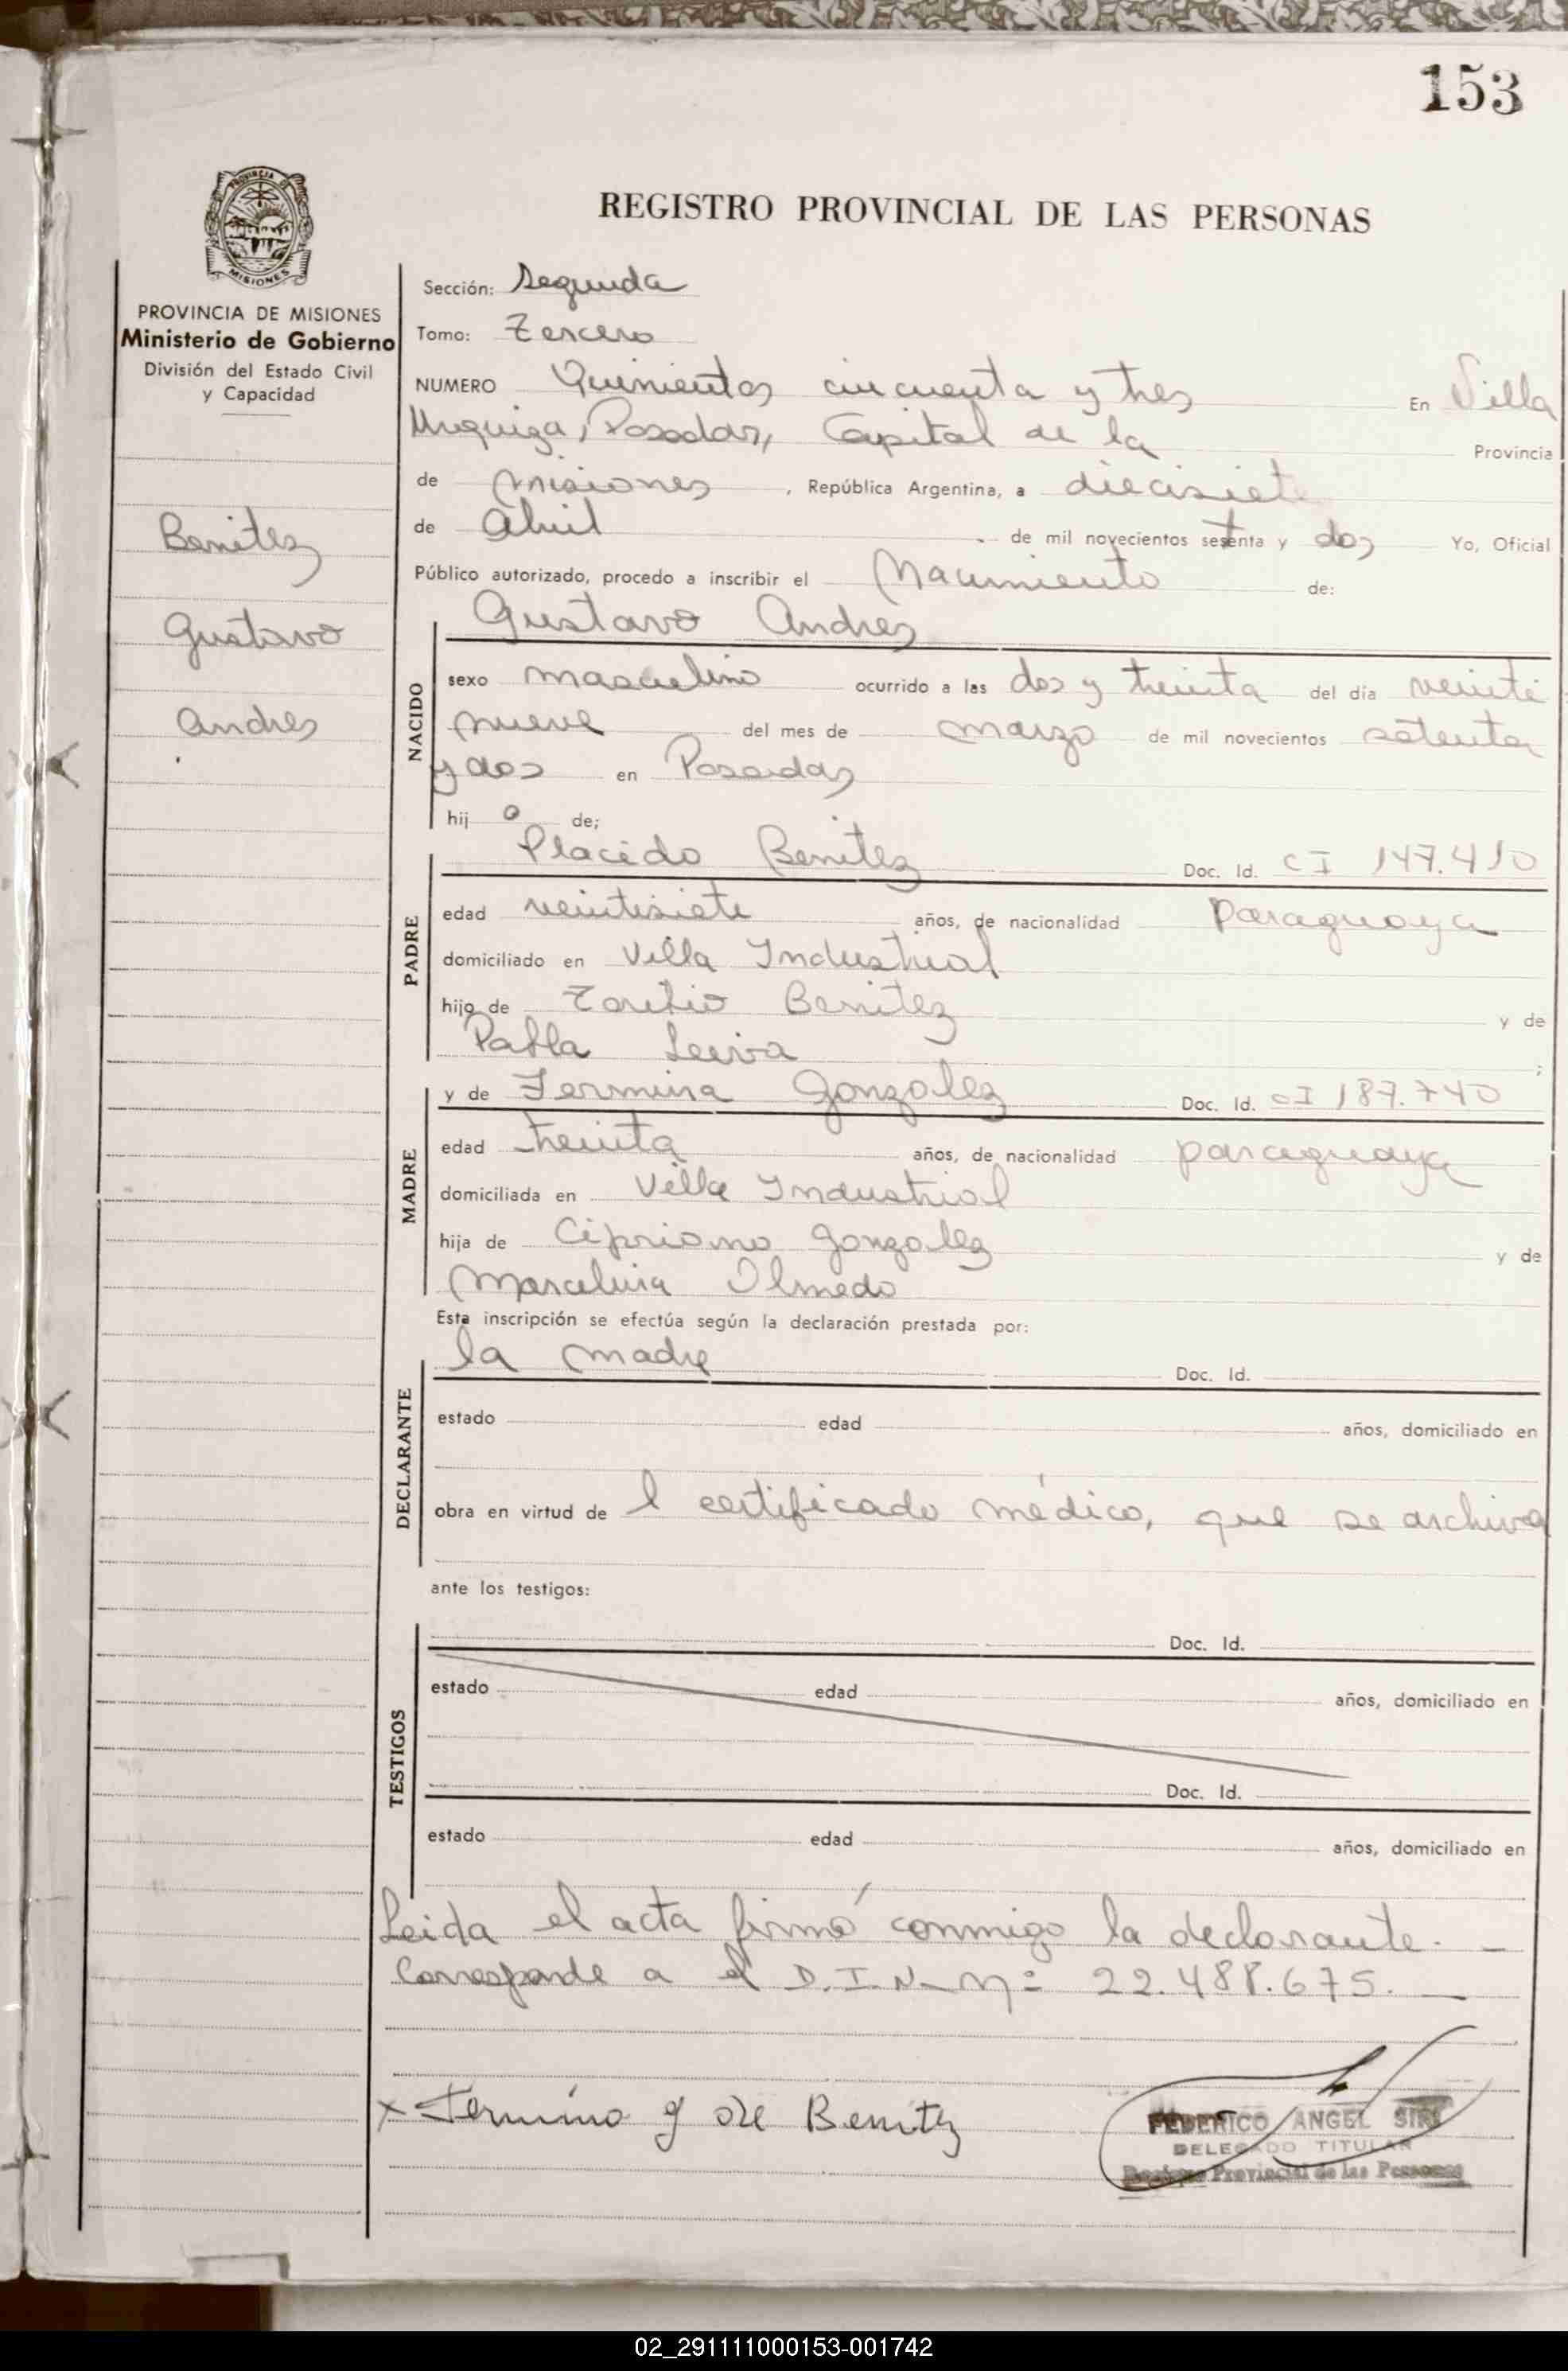 153
PROVINCIA DE
MISIONES
REGISTRO PROVINCIAL DE LAS PERSONAS
PROVINCIA DE MISIONES
Ministerio de Gobierno
División del Estado Civil
y Capacidad
Benitez
Gustavo
Andres
Sección: Segunda
Tomo: Tercero
NUMERO Quinientos cincuenta y tres En Villa
Urquiza, Posadas, Capital de la Provincia
de Misiones, República Argentina, a diecisiete
de Abril de mil novecientos setenta y dos Yo, Oficial
Público autorizado, procedo a inscribir el Nacimiento de:
Gustavo Andres
NACIDO
sexo masculino ocurrido a las dos y treinta del día veinte
nueve del mes de marzo de mil novecientos setenta
y dos en Posadas
hijo de;
Placido Benitez Doc. Id. CI 147.410
PADRE
edad veintisiete años, de nacionalidad paraguaya
domiciliado en Villa Industrial
hijo de Toribio Benitez y de
Pabla Leiva ;
y de Fermina Gonzalez Doc. Id. CI 187.740
MADRE
edad treinta años, de nacionalidad paraguaya
domiciliada en Villa Industrial
hija de Cipriano Gonzalez y de
Marcelina Olmedo
Esta inscripción se efectúa según la declaración prestada por:
la madre Doc. Id.
DECLARANTE
estado edad años, domiciliado en
obra en virtud de l certificado médico, que se archiva
ante los testigos:
Doc. Id.
TESTIGOS
estado edad años, domiciliado en
Doc. Id.
estado edad años, domiciliado en
Leida el acta firmó conmigo la declarante. —
Corresponde a el D.I.N—Nº 22.488.675. —
x Fermina g de Benitez
FEDERICO ANGEL
DELEGADO TITULAR
Registro Provincial de las Personas
02_291111000153-001742